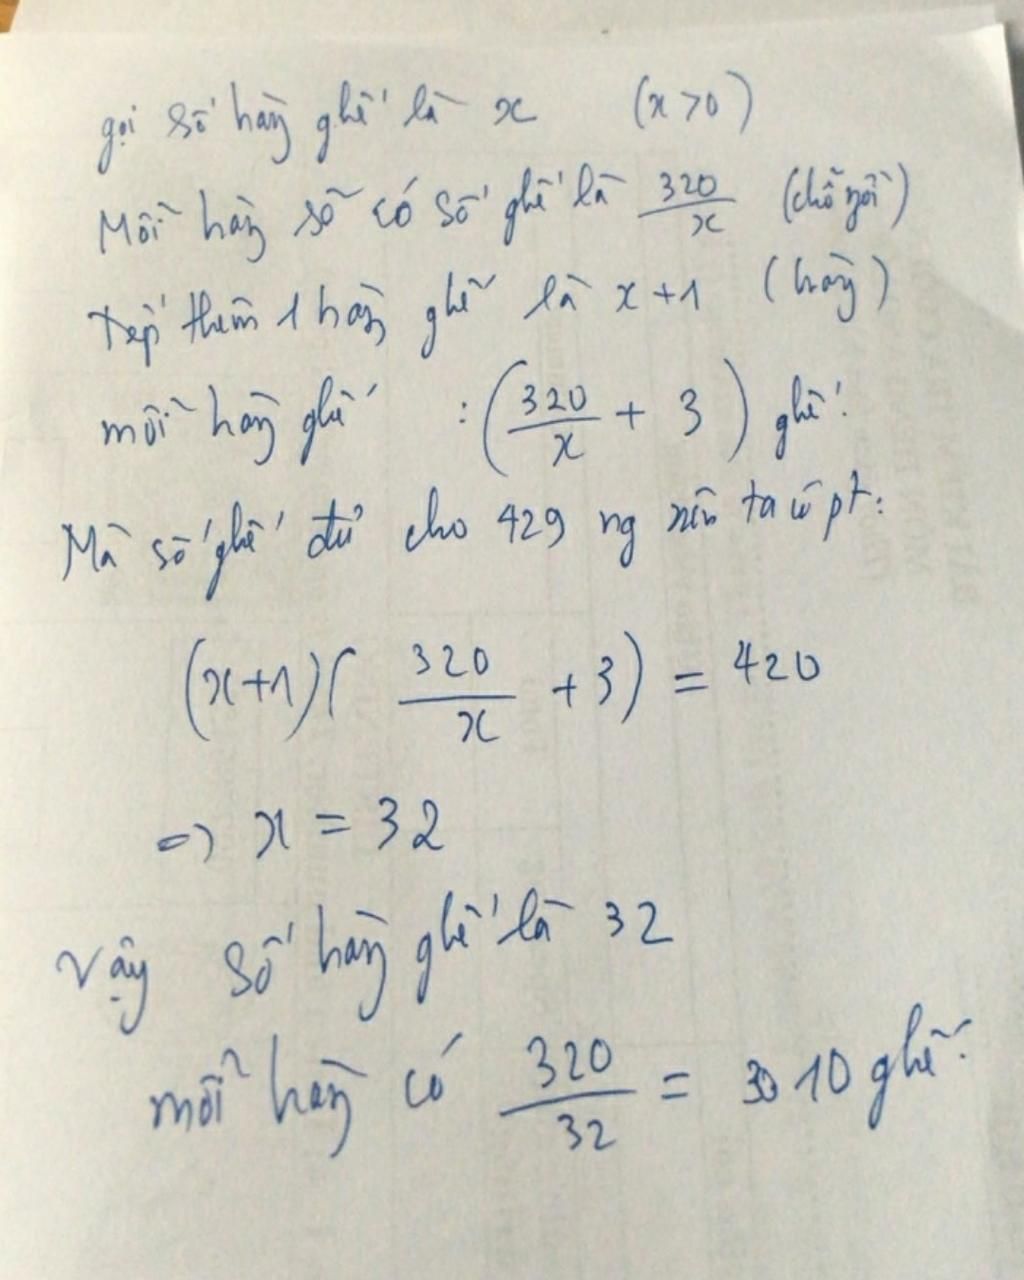 gọi số hàng ghế là x (x > 0)
Mỗi hàng số có số ghế là 320/x (chỗ ngồi)
xếp thêm 1 hàng ghế là x + 1 (hàng)
mỗi hàng ghế : (320/x + 3) ghế.
Mà số ghế đủ cho 429 ng nên ta có pt:
(x+1)(320/x + 3) = 420
=> x = 32
Vậy số hàng ghế là 32
mỗi hàng có 320/32 = 10 ghế.